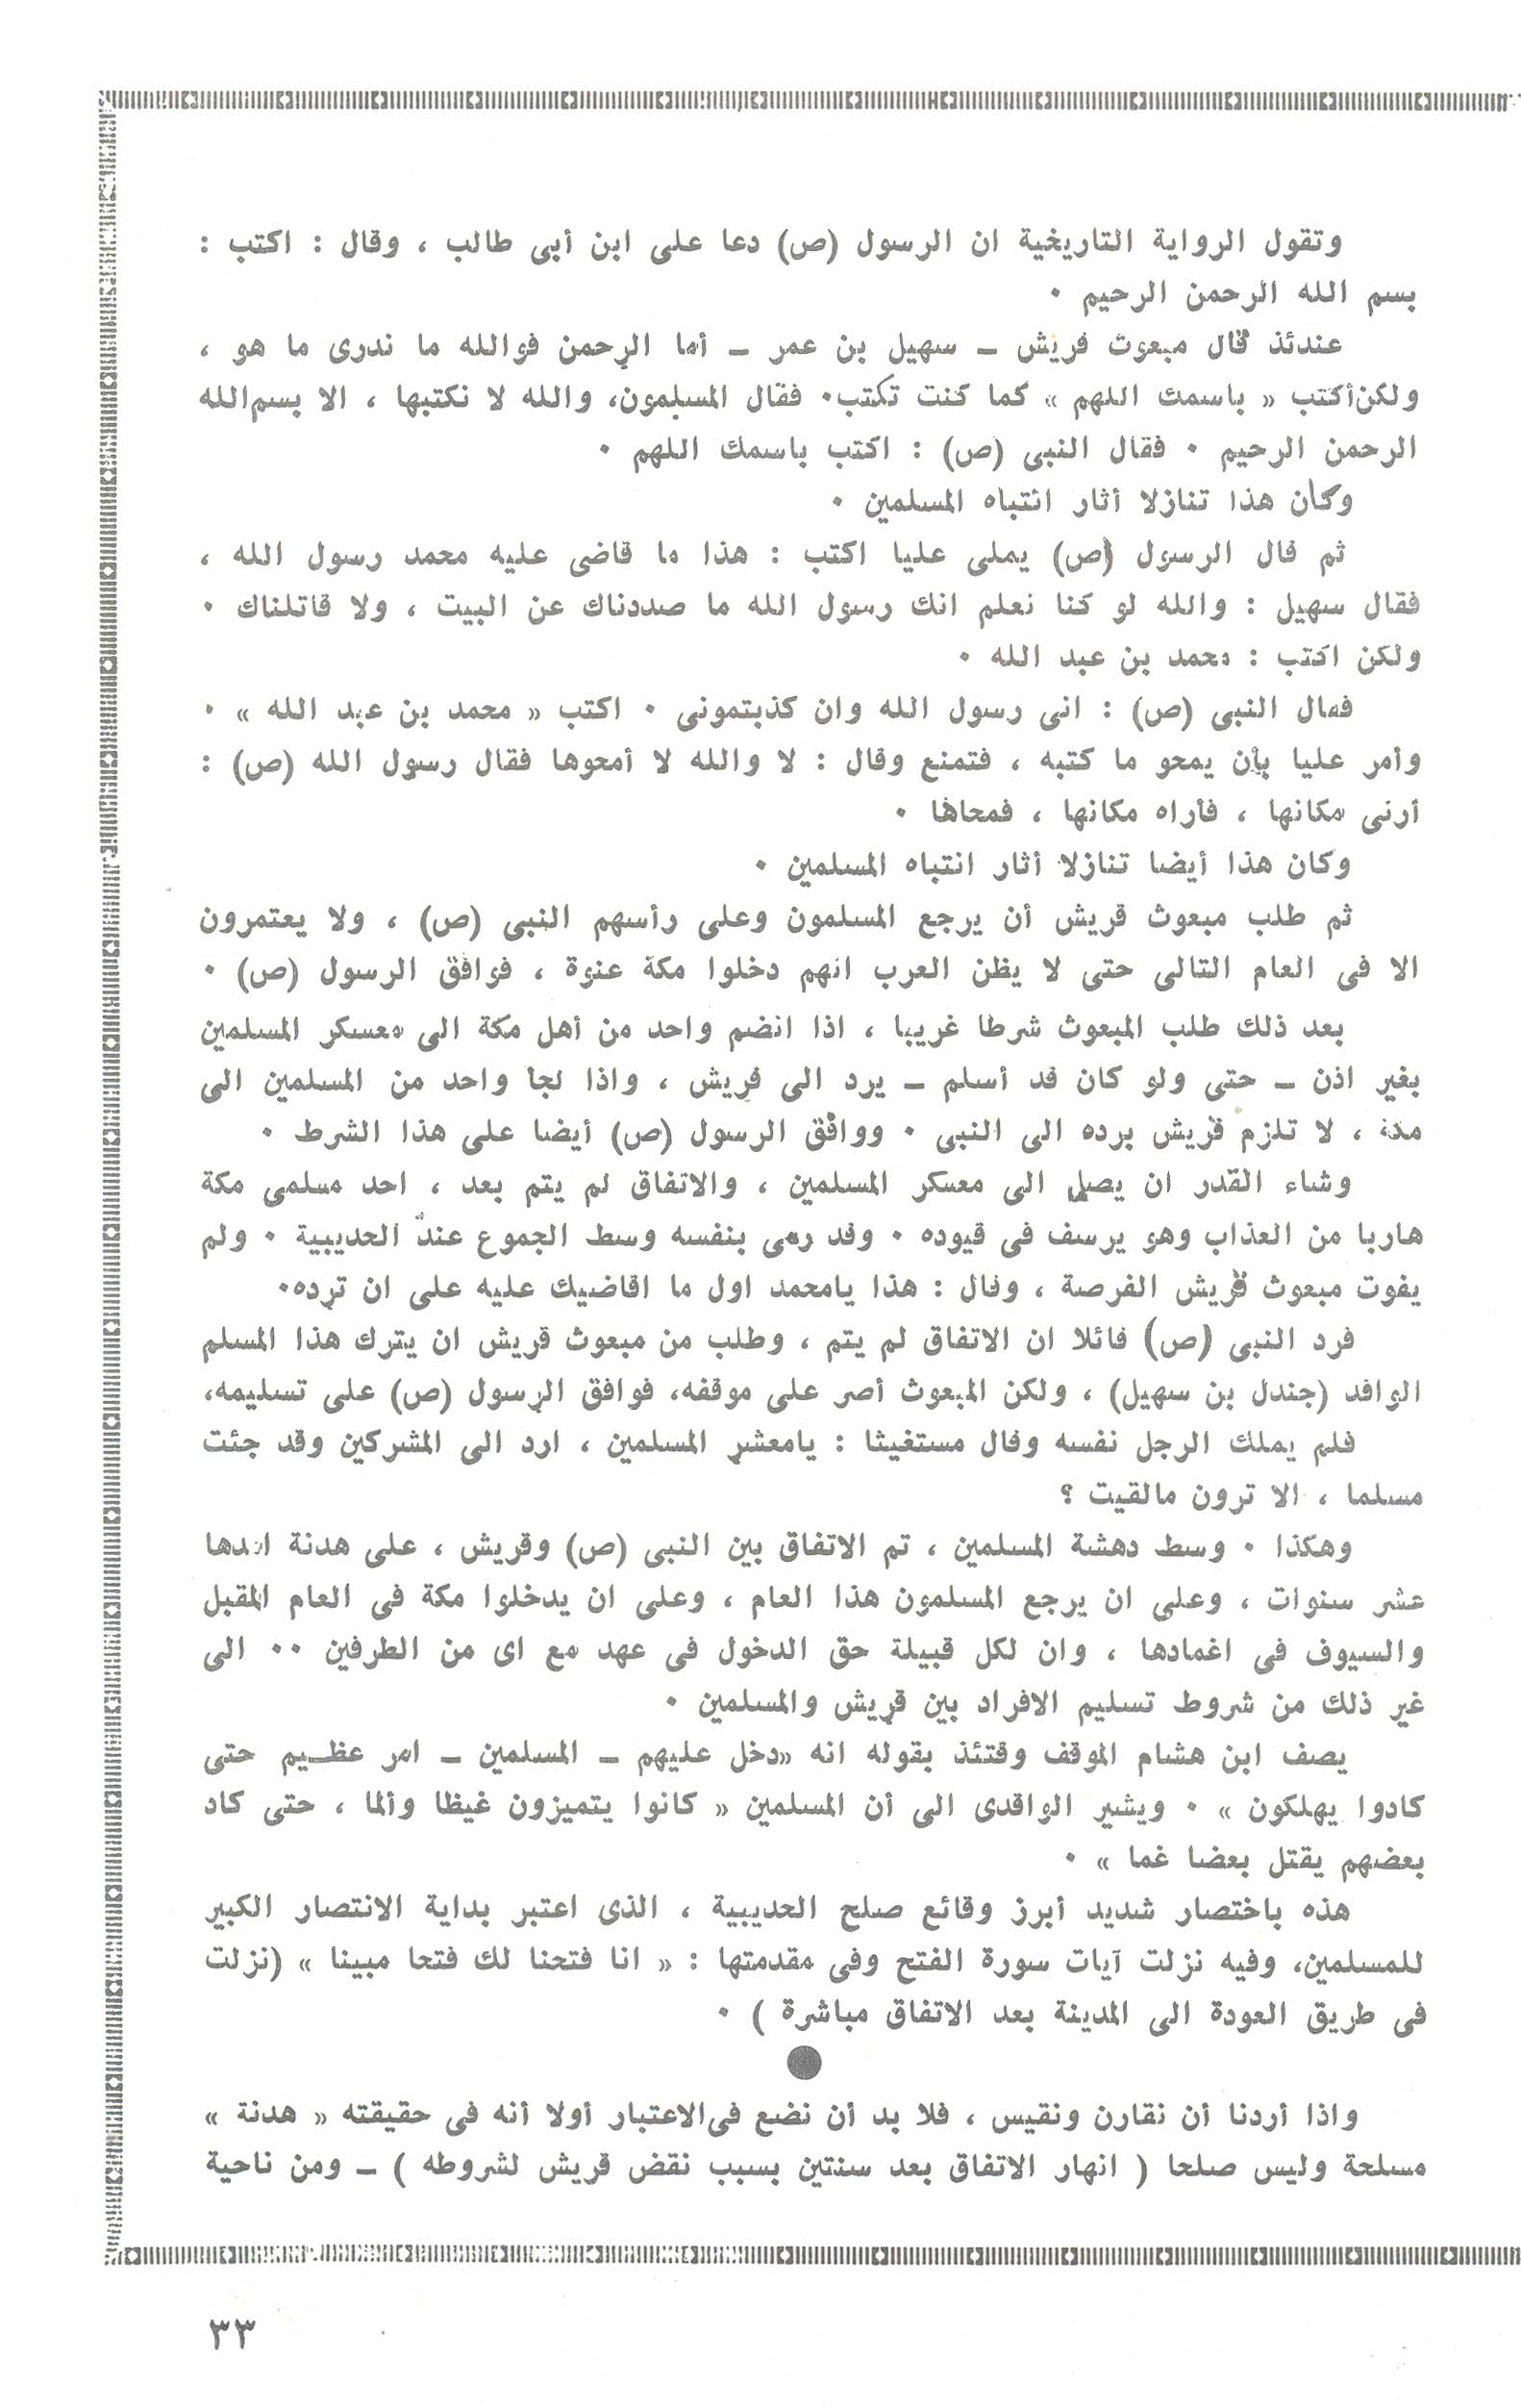 وتقول الرواية التاريخية ان الرسول (ص) دعا على ابن أبى طالب ، وقال : اكتب :
بسم الله الرحمن الرحيم ٠
عندئذ قال مبعوث قريش ــ سهيل بن عمر ــ أما الرحمن فوالله ما ندرى ما هو ،
ولكن أكتب « باسمك اللهم » كما كنت تكتب٠ فقال المسلمون، والله لا نكتبها ، الا بسم الله
الرحمن الرحيم ٠ فقال النبى (ص) : اكتب باسمك اللهم ٠
وكان هذا تنازلا أثار انتباه المسلمين ٠
ثم قال الرسول (ص) يملى عليا اكتب : هذا ما قاضى عليه محمد رسول الله ،
فقال سهيل : والله لو كنا نعلم انك رسول الله ما صددناك عن البيت ، ولا قاتلناك ٠
ولكن اكتب : محمد بن عبد الله ٠
فقال النبى (ص) : انى رسول الله وان كذبتمونى ٠ اكتب « محمد بن عبد الله » ٠
وأمر عليا بأن يمحو ما كتبه ، فتمنع وقال : لا والله لا أمحوها فقال رسول الله (ص) :
أرنى مكانها ، فأراه مكانها ، فمحاها ٠
وكان هذا أيضا تنازلا أثار انتباه المسلمين ٠
ثم طلب مبعوث قريش أن يرجع المسلمون وعلى رأسهم النبى (ص) ، ولا يعتمرون
الا فى العام التالى حتى لا يظن العرب انهم دخلوا مكة عنوة ، فوافق الرسول (ص) ٠
بعد ذلك طلب المبعوث شرطا غريبا ، اذا انضم واحد من أهل مكة الى معسكر المسلمين
بغير اذن ــ حتى ولو كان قد أسلم ــ يرد الى قريش ، واذا لجأ واحد من المسلمين الى
مكة ، لا تلزم قريش برده الى النبى ٠ ووافق الرسول (ص) أيضا على هذا الشرط ٠
وشاء القدر ان يصل الى معسكر المسلمين ، والاتفاق لم يتم بعد ، احد مسلمى مكة
هاربا من العذاب وهو يرسف فى قيوده ٠ وقد رمى بنفسه وسط الجموع عند الحديبية ٠ ولم
يفوت مبعوث قريش الفرصة ، وقال : هذا يامحمد اول ما اقاضيك عليه على ان ترده٠
فرد النبى (ص) قائلا ان الاتفاق لم يتم ، وطلب من مبعوث قريش ان يترك هذا المسلم
الوافد (جندل بن سهيل) ، ولكن المبعوث أصر على موقفه، فوافق الرسول (ص) على تسليمه،
فلم يملك الرجل نفسه وقال مستغيثا : يامعشر المسلمين ، ارد الى المشركين وقد جئت
مسلما ، الا ترون مالقيت ؟
وهكذا ٠ وسط دهشة المسلمين ، تم الاتفاق بين النبى (ص) وقريش ، على هدنة امدها
عشر سنوات ، وعلى ان يرجع المسلمون هذا العام ، وعلى ان يدخلوا مكة فى العام المقبل
والسيوف فى اغمادها ، وان لكل قبيلة حق الدخول فى عهد مع اى من الطرفين ٠٠ الى
غير ذلك من شروط تسليم الافراد بين قريش والمسلمين ٠
يصف ابن هشام الموقف وقتئذ بقوله انه «دخل عليهم ــ المسلمين ــ امر عظــيم حتى
كادوا يهلكون » ٠ ويشير الواقدى الى أن المسلمين « كانوا يتميزون غيظا وألما ، حتى كاد
بعضهم يقتل بعضا غما » ٠
هذه باختصار شديد أبرز وقائع صلح الحديبية ، الذى اعتبر بداية الانتصار الكبير
للمسلمين، وفيه نزلت آيات سورة الفتح وفى مقدمتها : « انا فتحنا لك فتحا مبينا » (نزلت
فى طريق العودة الى المدينة بعد الاتفاق مباشرة ) ٠
واذا أردنا أن نقارن ونقيس ، فلا بد أن نضع فى الاعتبار أولا أنه فى حقيقته « هدنة »
مسلحة وليس صلحا ( انهار الاتفاق بعد سنتين بسبب نقض قريش لشروطه ) ــ ومن ناحية
٣٣